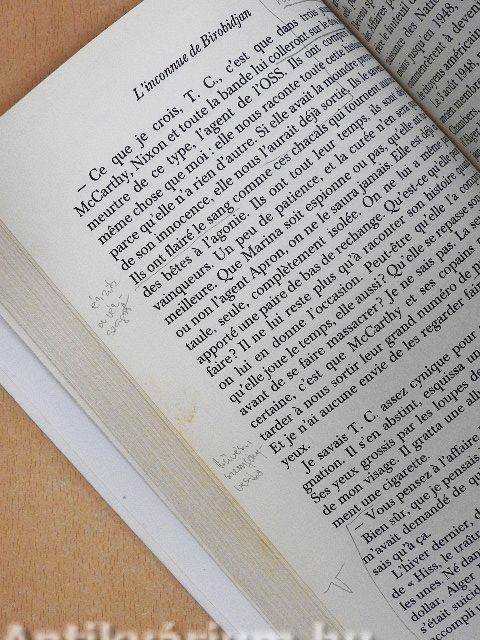 L'inconnue de Birobidjan
– Ce que je crois, T. C., c'est que dans trois
McCarthy, Nixon et toute la bande lui colleront sur le dos
meurtre de ce type, l'agent de l'OSS. Ils ont compris
même chose que moi : elle nous raconte toute cette histoire
parce qu'elle n'a rien d'autre. Si elle avait la moindre preuve
de son innocence, elle nous l'aurait déjà sortie. Ils le savent
Ils ont flairé le sang comme ces chacals qui tournent autour
des bêtes à l'agonie. Ils ont tout leur temps, ils sont déjà
vainqueurs. Un peu de patience, et la curée n'en sera que
meilleure. Que Marina soit espionne ou pas, qu'elle ait
ou non l'agent Apron, on ne le saura jamais. Elle est déjà
taule, seule, complètement isolée. On ne lui a même pas
apporté une paire de bas de rechange. Qu'est-ce qu'elle peut
faire ? Il ne lui reste plus qu'à raconter son histoire quand
on lui en donne l'occasion. Peut-être qu'elle l'a compris
qu'elle joue le temps, elle aussi ? Qu'elle se repasse son
avant de se faire massacrer ? Je ne sais pas. La seule
certaine, c'est que McCarthy et ses copains ne
tarder à nous sortir leur grand numéro de
Et je n'ai aucune envie de les regarder faire
yeux.
Je savais T. C. assez cynique pour
gnation. Il s'en abstint, esquissa un
Ses yeux grossis par les loupes de
de mon visage. Il gratta une allu
ment une cigarette.
– Vous pensez à l'affaire
Bien sûr, que je pensais
m'avait demandé de qu
sais qu'à ça.
L'hiver dernier, d
de « Hiss, le traître
les unes. Né dan
dollar, Alger
s'était suicid
accompli u
Antikvárium.hu